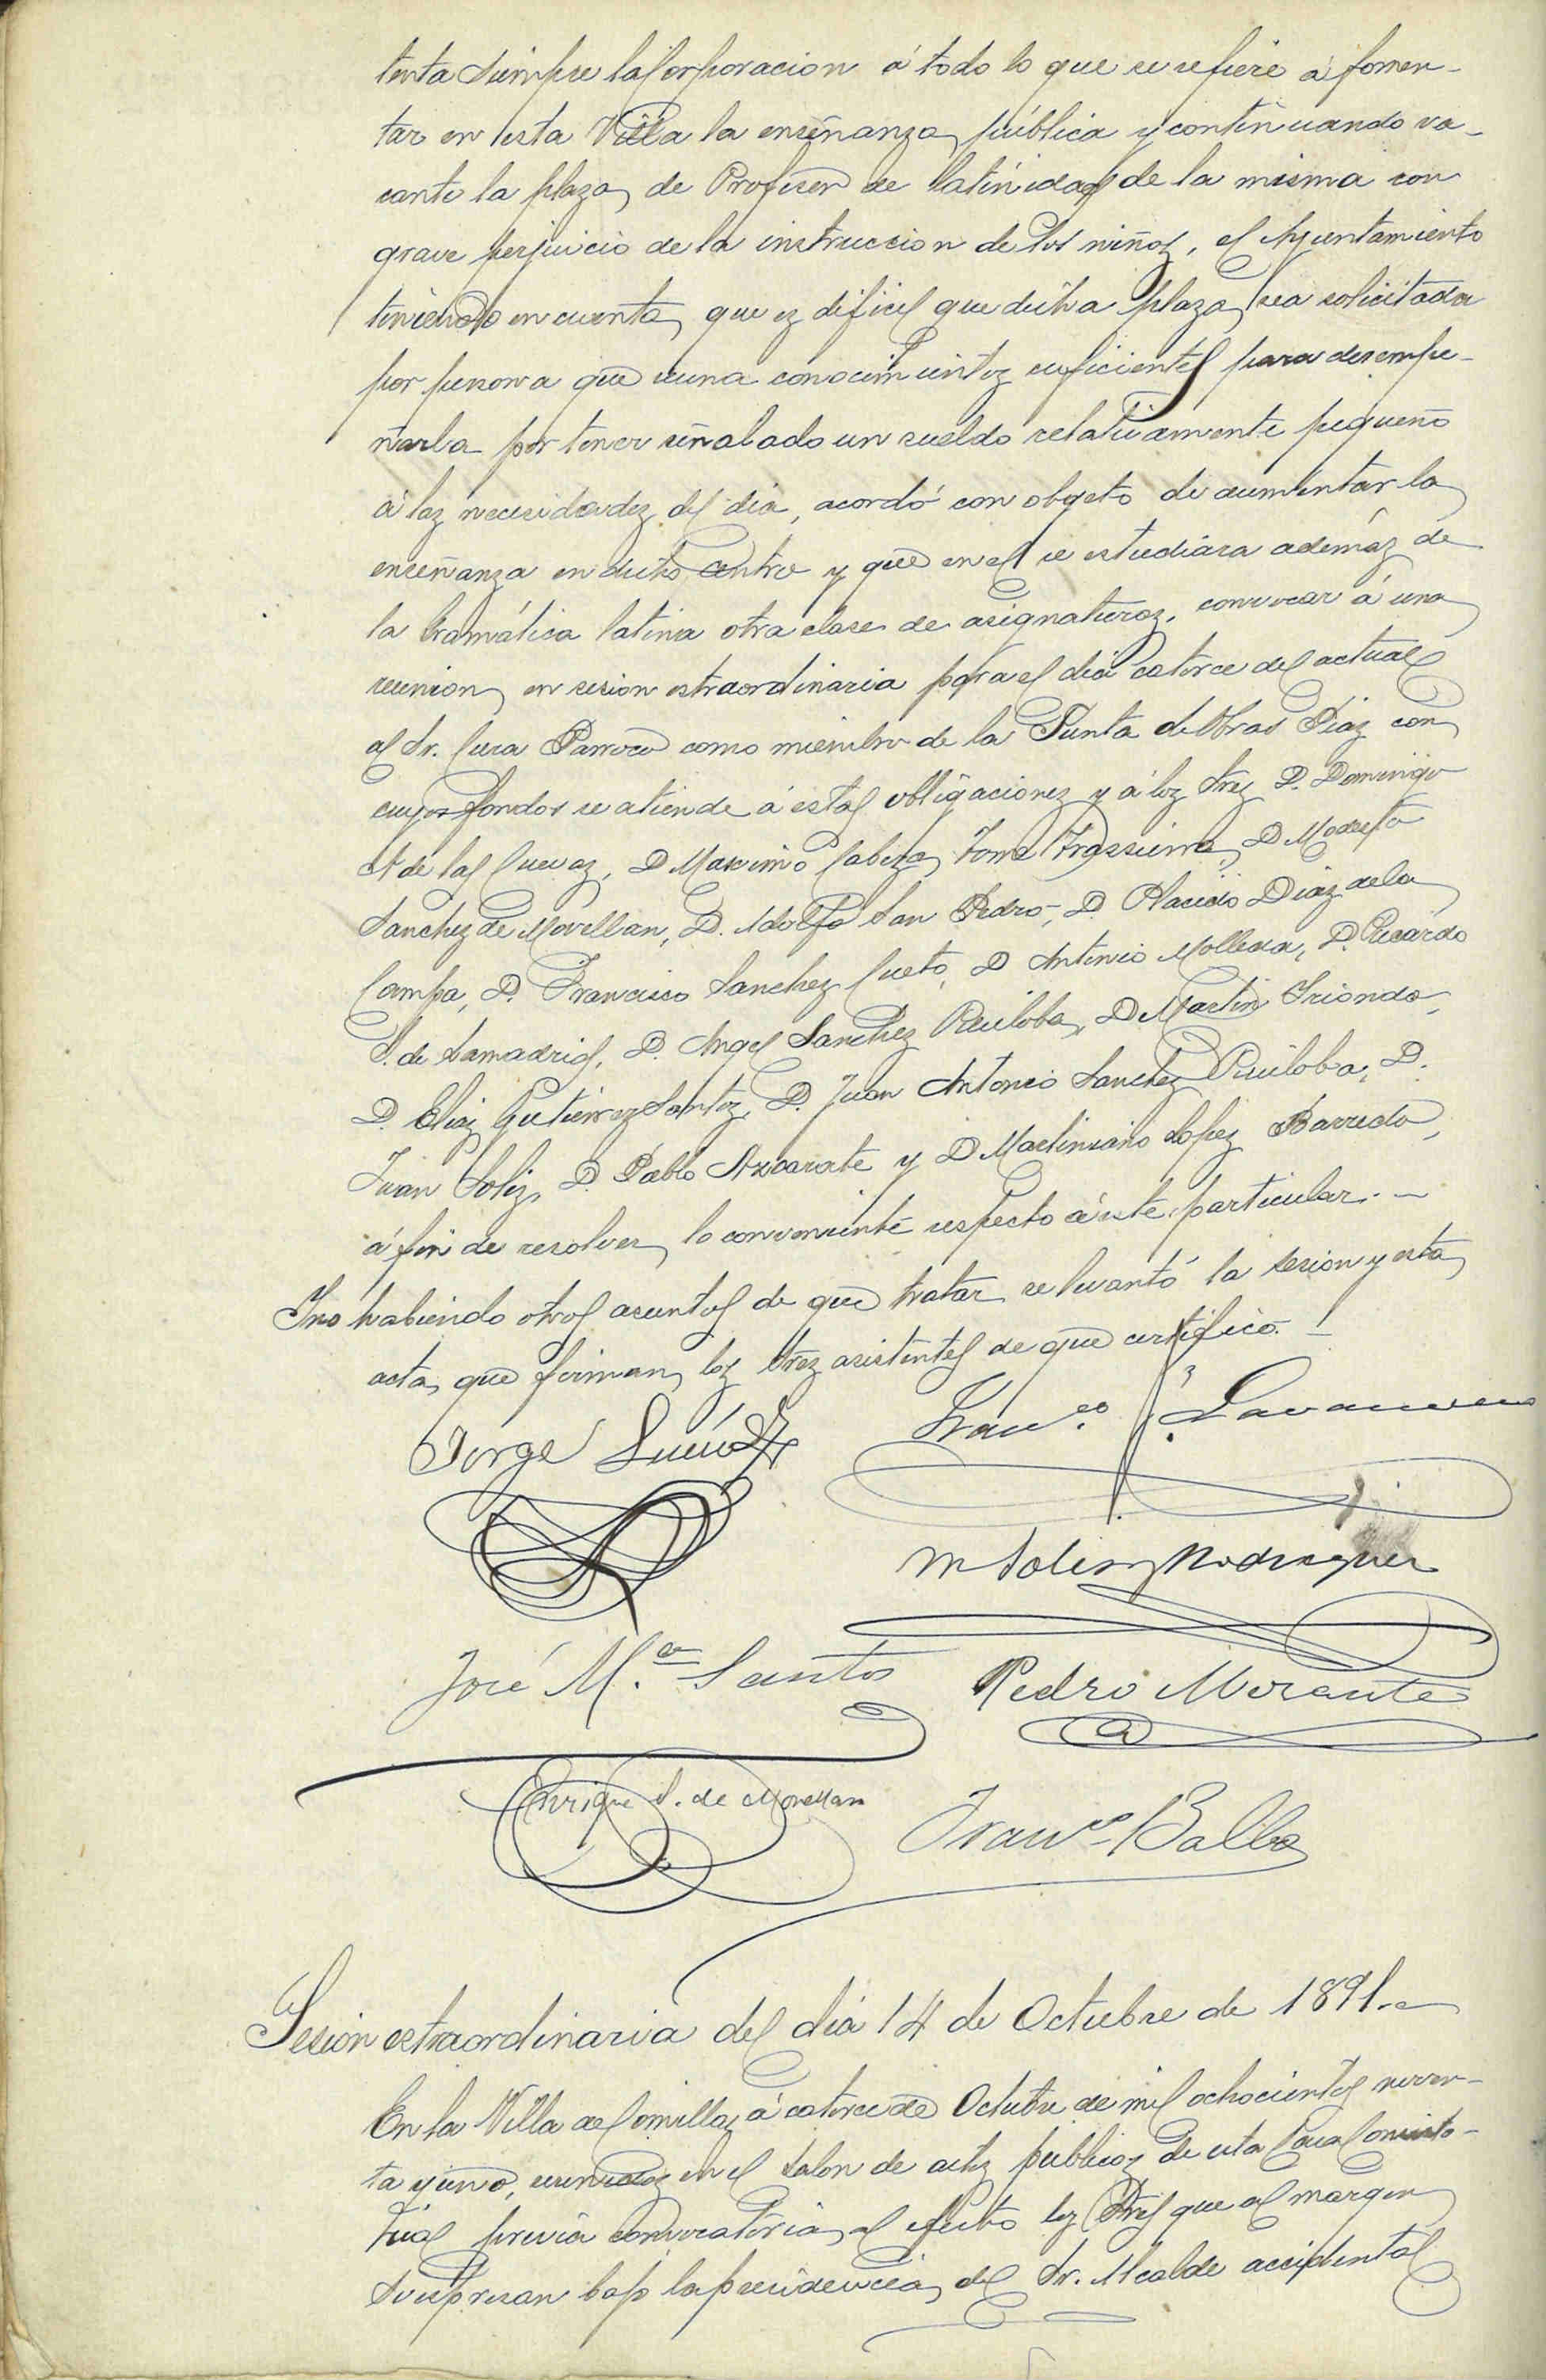 tenta siempre la Corporacion á todo lo que se refiere a fomen-
tar en esta Villa la enseñanza pública y continuando va-
cante la plaza de Profesor de latinidad de la misma con
grave perjuicio de la instruccion de los niños, el Ayuntamiento
teniendo en cuenta que es dificil que dicha plaza sea solicitada
por persona que reuna conocimientos suficientes para desempe-
ñarla por tener señalado un sueldo relativamente pequeño
á las necesidades del dia, acordó con objeto de aumentar la
enseñanza en dicho centro y que en el se estudiara además de
la Gramática latina otra clase de asignaturas, convocar á una
reunion en sesion estraordinaria para el dia catorce del actual
al Sr. Cura Parroco como miembro de la Junta de Obras Pias con
cuyos fondos se atiende á estas obligaciones y á los Sres D. Domingo
A de las Cuevas, D Maximo Cabeza, D Modesto
Sanchez de Movellan, D. Adolfo San Pedro, D. Placido Diaz de la
Campa, D. Francisco Sanchez Cueto, D Antonio Molleda, D. Ricardo
S. de Lamadrid, D. Angel Sanchez Ruiloba, D Martin Iriondo,
D. Elias Gutierrez Santos, D. Juan Antonio Sanchez Ruiloba, D.
Juan Solis, D. Pablo Azcarate y D Martiniano Lopez Barreda,
á fin de resolver lo conveniente respecto á este particular. —
Y no habiendo otros asuntos de que tratar se levantó la sesion y esta
acta que firman los Sres asistentes de que certifico. —
Jorge
Franco.
M Solis Rodriguez
José M.a Santos
Pedro Morante
Enrique S. de Movellan
Franco Balbas
Sesion estraordinaria del dia 14 de Octubre de 1891. —
En la Villa de Comillas á catorce de Octubre de mil ochocientos noven-
ta y uno, reunidos en el Salon de actos publicos de esta Casa Consisto-
rial previa convocatoria al efecto los Sres que al margen
se espresan bajo la presidencia del Sr. Alcalde accidental